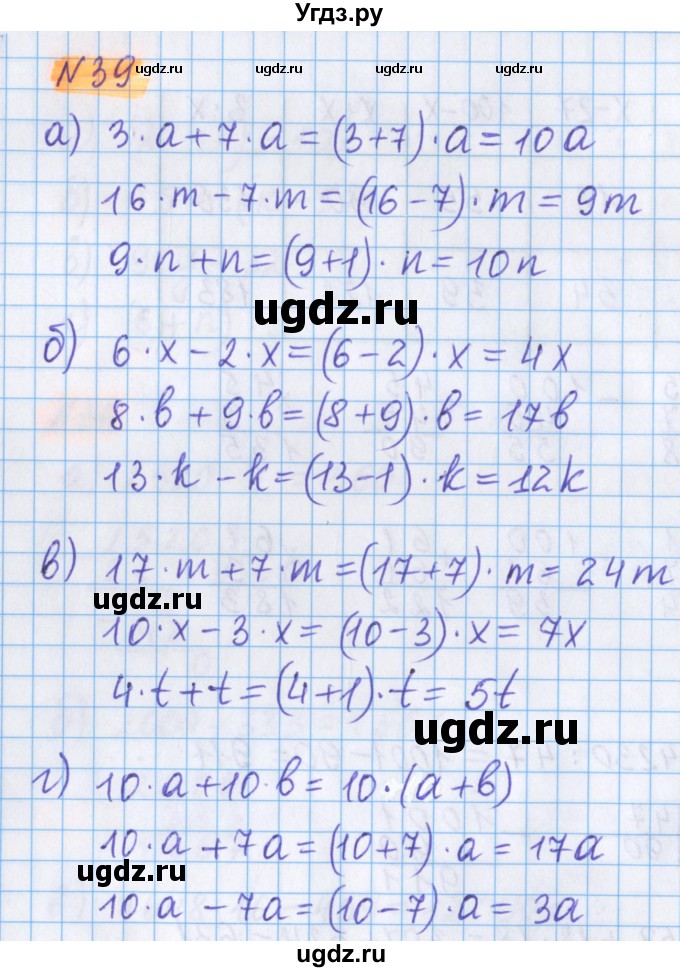 Угдз.ру
N 39
ugdz.ru
ugdz.ru
ugdz.ru
а) 3·a+7·a=(3+7)·a=10a
16·m-7·m=(16-7)·m=9m
9·n+n=(9+1)·n=10n
ugdz.ru
б) 6·x-2·x=(6-2)·x=4x
8·b+9·b=(8+9)·b=17b
13·k-k=(13-1)·k=12k
в) 17·m+7·m=(17+7)·m=24m
ugdz.ru
10·x-3·x=(10-3)·x=7x
4·t+t=(4+1)·t=5t
ugdz.ru
г) 10·a+10·b=10·(a+b)
10·a+7a=(10+7)·a=17a
ugdz.ru
10·a-7a=(10-7)·a=3a
ugdz.ru
ugdz.ru
ugdz.ru